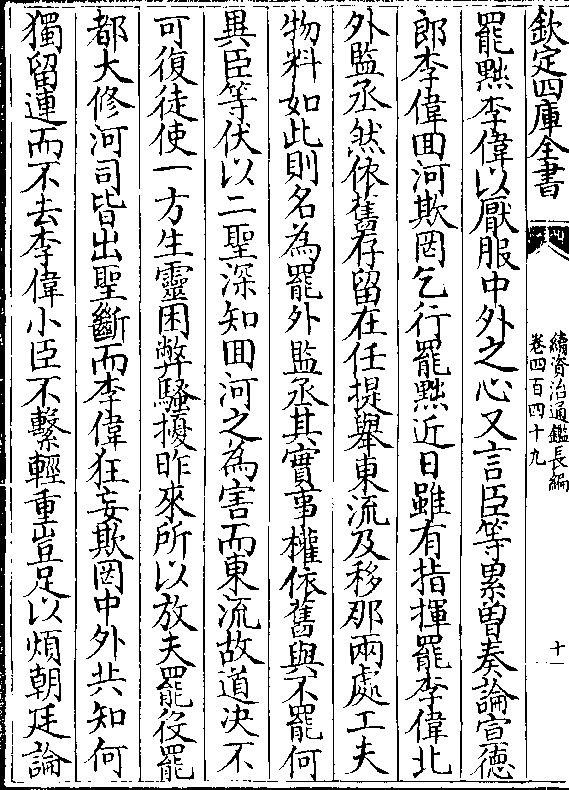 欽定四庫全書
續資治通鑑長編
卷四百四十九
十一
罷黜李偉以厭服中外之心又言臣等累曽奏論宣徳
郎李偉囬河欺罔乞行罷黜近日雖有指揮罷李偉北
外監丞然依舊存留在任提舉東流及移那兩處工夫
物料如此則名為罷外監丞其實事權依舊與不罷何
異臣等伏以二聖深知囬河之為害而東流故道決不
可復徒使一方生靈困弊騷擾昨來所以放夫罷役罷
都大修河司皆出聖斷而李偉狂妄欺罔中外共知何
獨留連而不去李偉小臣不繫輕重豈足以煩朝廷論